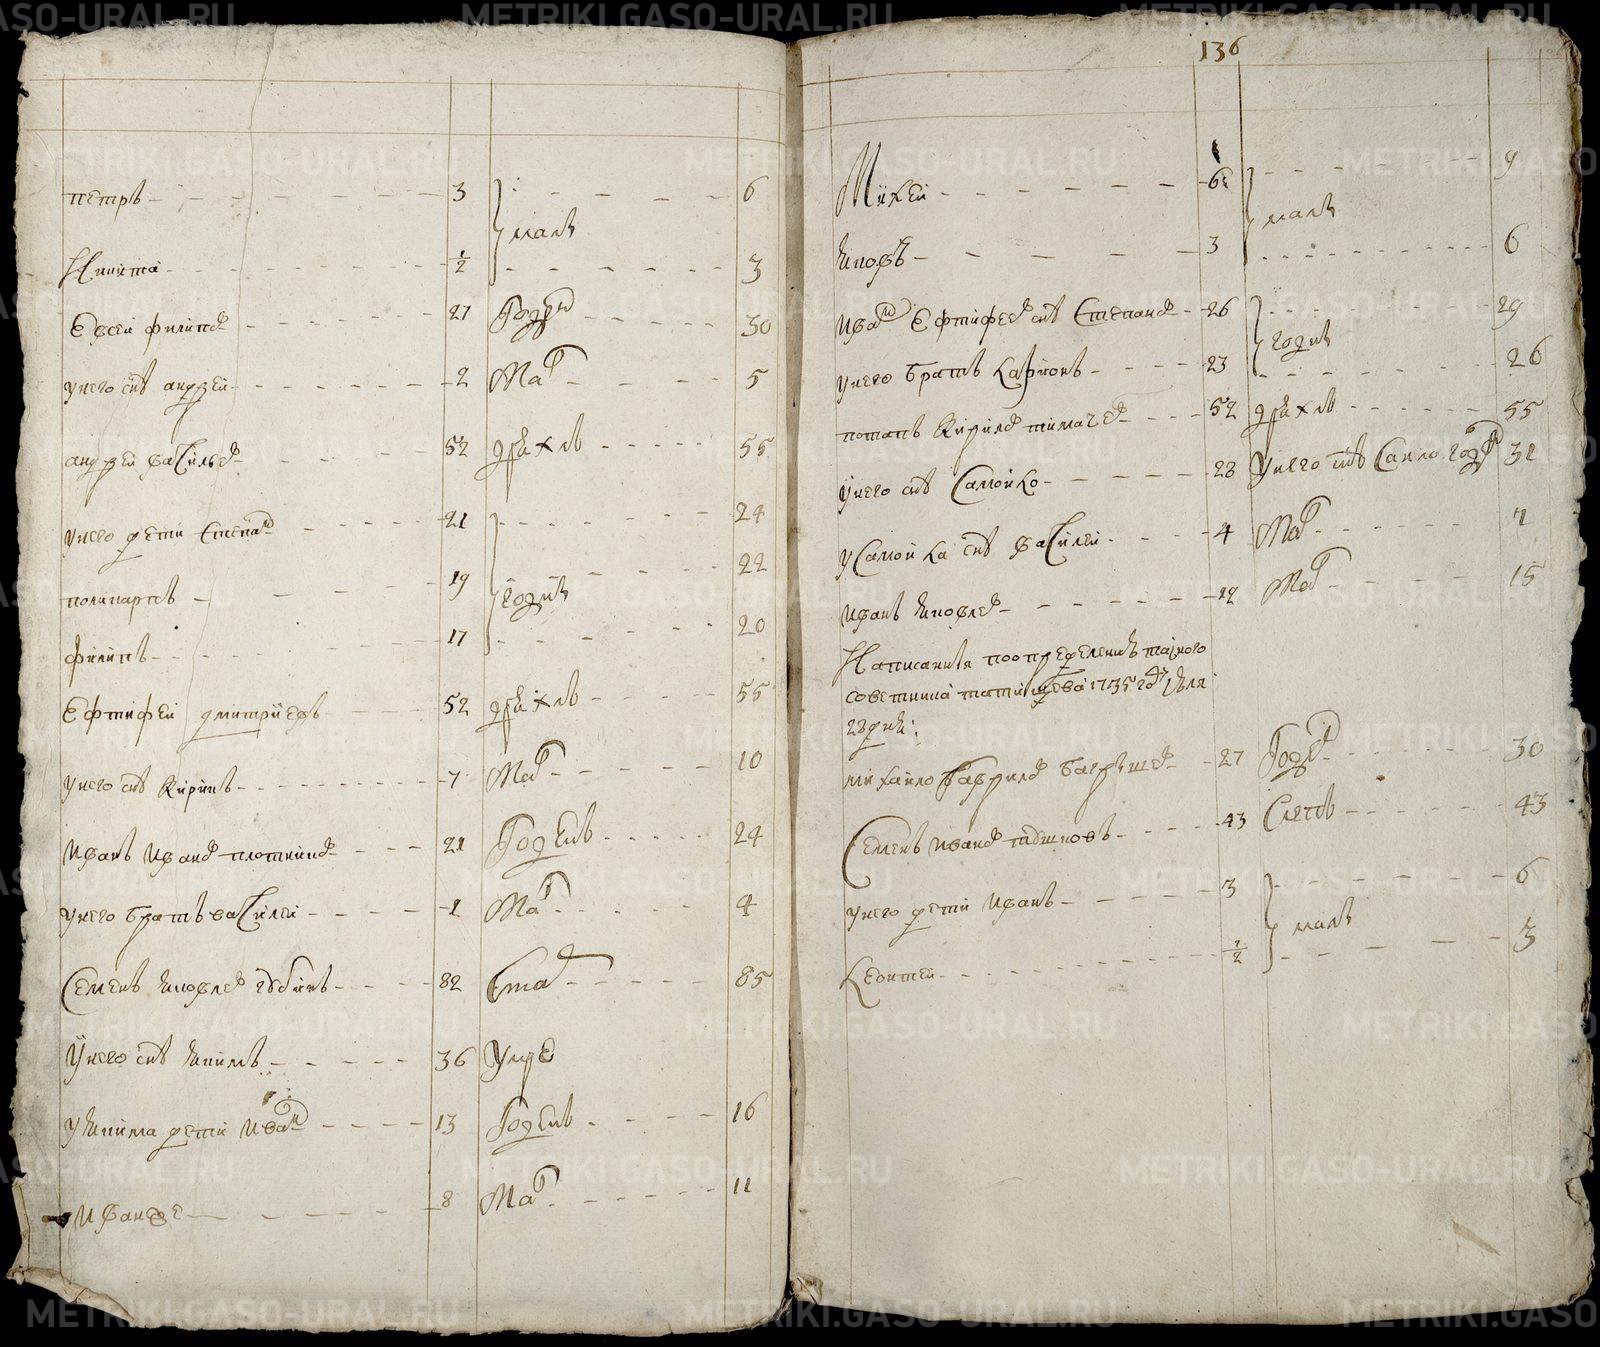 136
петръ 3 } малъ 6
Никита 1/2 3
Евсей филипов 27 Годен 30
у него снъ андрей 2 Мал 5
андрей васильев 52 дряхлъ 55
у него дети степан 21 } годны 24
поликарпъ 19 22
филипъ 17 20
Ефтифей дмитриевъ 52 дряхлъ 55
у него снъ Кирикъ 7 Мал 10
Иванъ Иванов плотников 21 Годенъ 24
у него братъ василеи 1 Мал 4
Семенъ Яковлев губинъ 82 Стар 85
У него снъ якимъ 36 Умре
у якима дети Иван 13 Годенъ 16
Иван же 8 Мал 11
Михей 6 } малы 9
яковъ 3 6
Иван Ефтифеев снъ Степанов 26 } годны 29
у него братъ Сафронъ 23 26
потапъ Кирилов 52 дряхлъ 55
У него снъ Самойло 28 У него снъ Самоило год 31
у Самойла снъ василей 4 Мал 7
Иванъ яковлев 12 Мал 15
Написанные по определенью тайного
советника татищева 1735 году июля
28 дня:
михайло гаврилов 27 Годен 30
Семенъ Иванов 43 Слепъ 43
у него дети Иванъ 3 } малы 6
Леонтей 1/2 3
METRIKI.GASO-URAL.RU